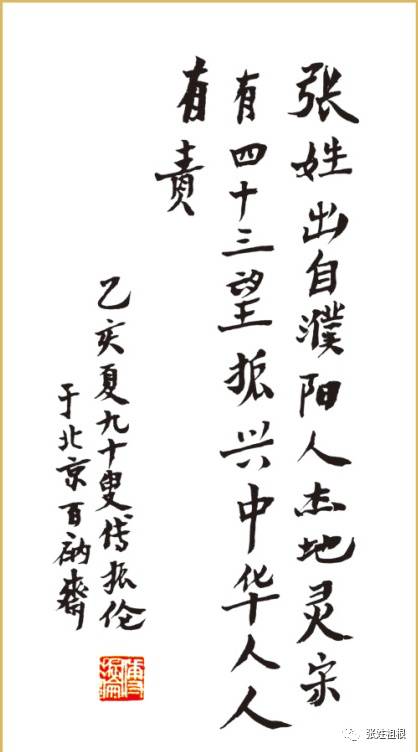 张姓出自濮阳人杰地灵宗
有四十三望振兴中华人人
有责
乙亥夏九十叟傅振伦
于北京百衲斋
张姓祖根